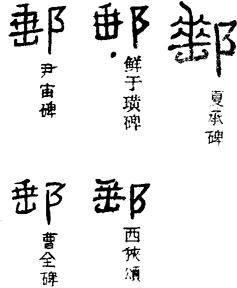 郵
尹宙碑
郵
鲜于璜碑
郵
夏承碑
郵
曹全碑
郵
西狹頌